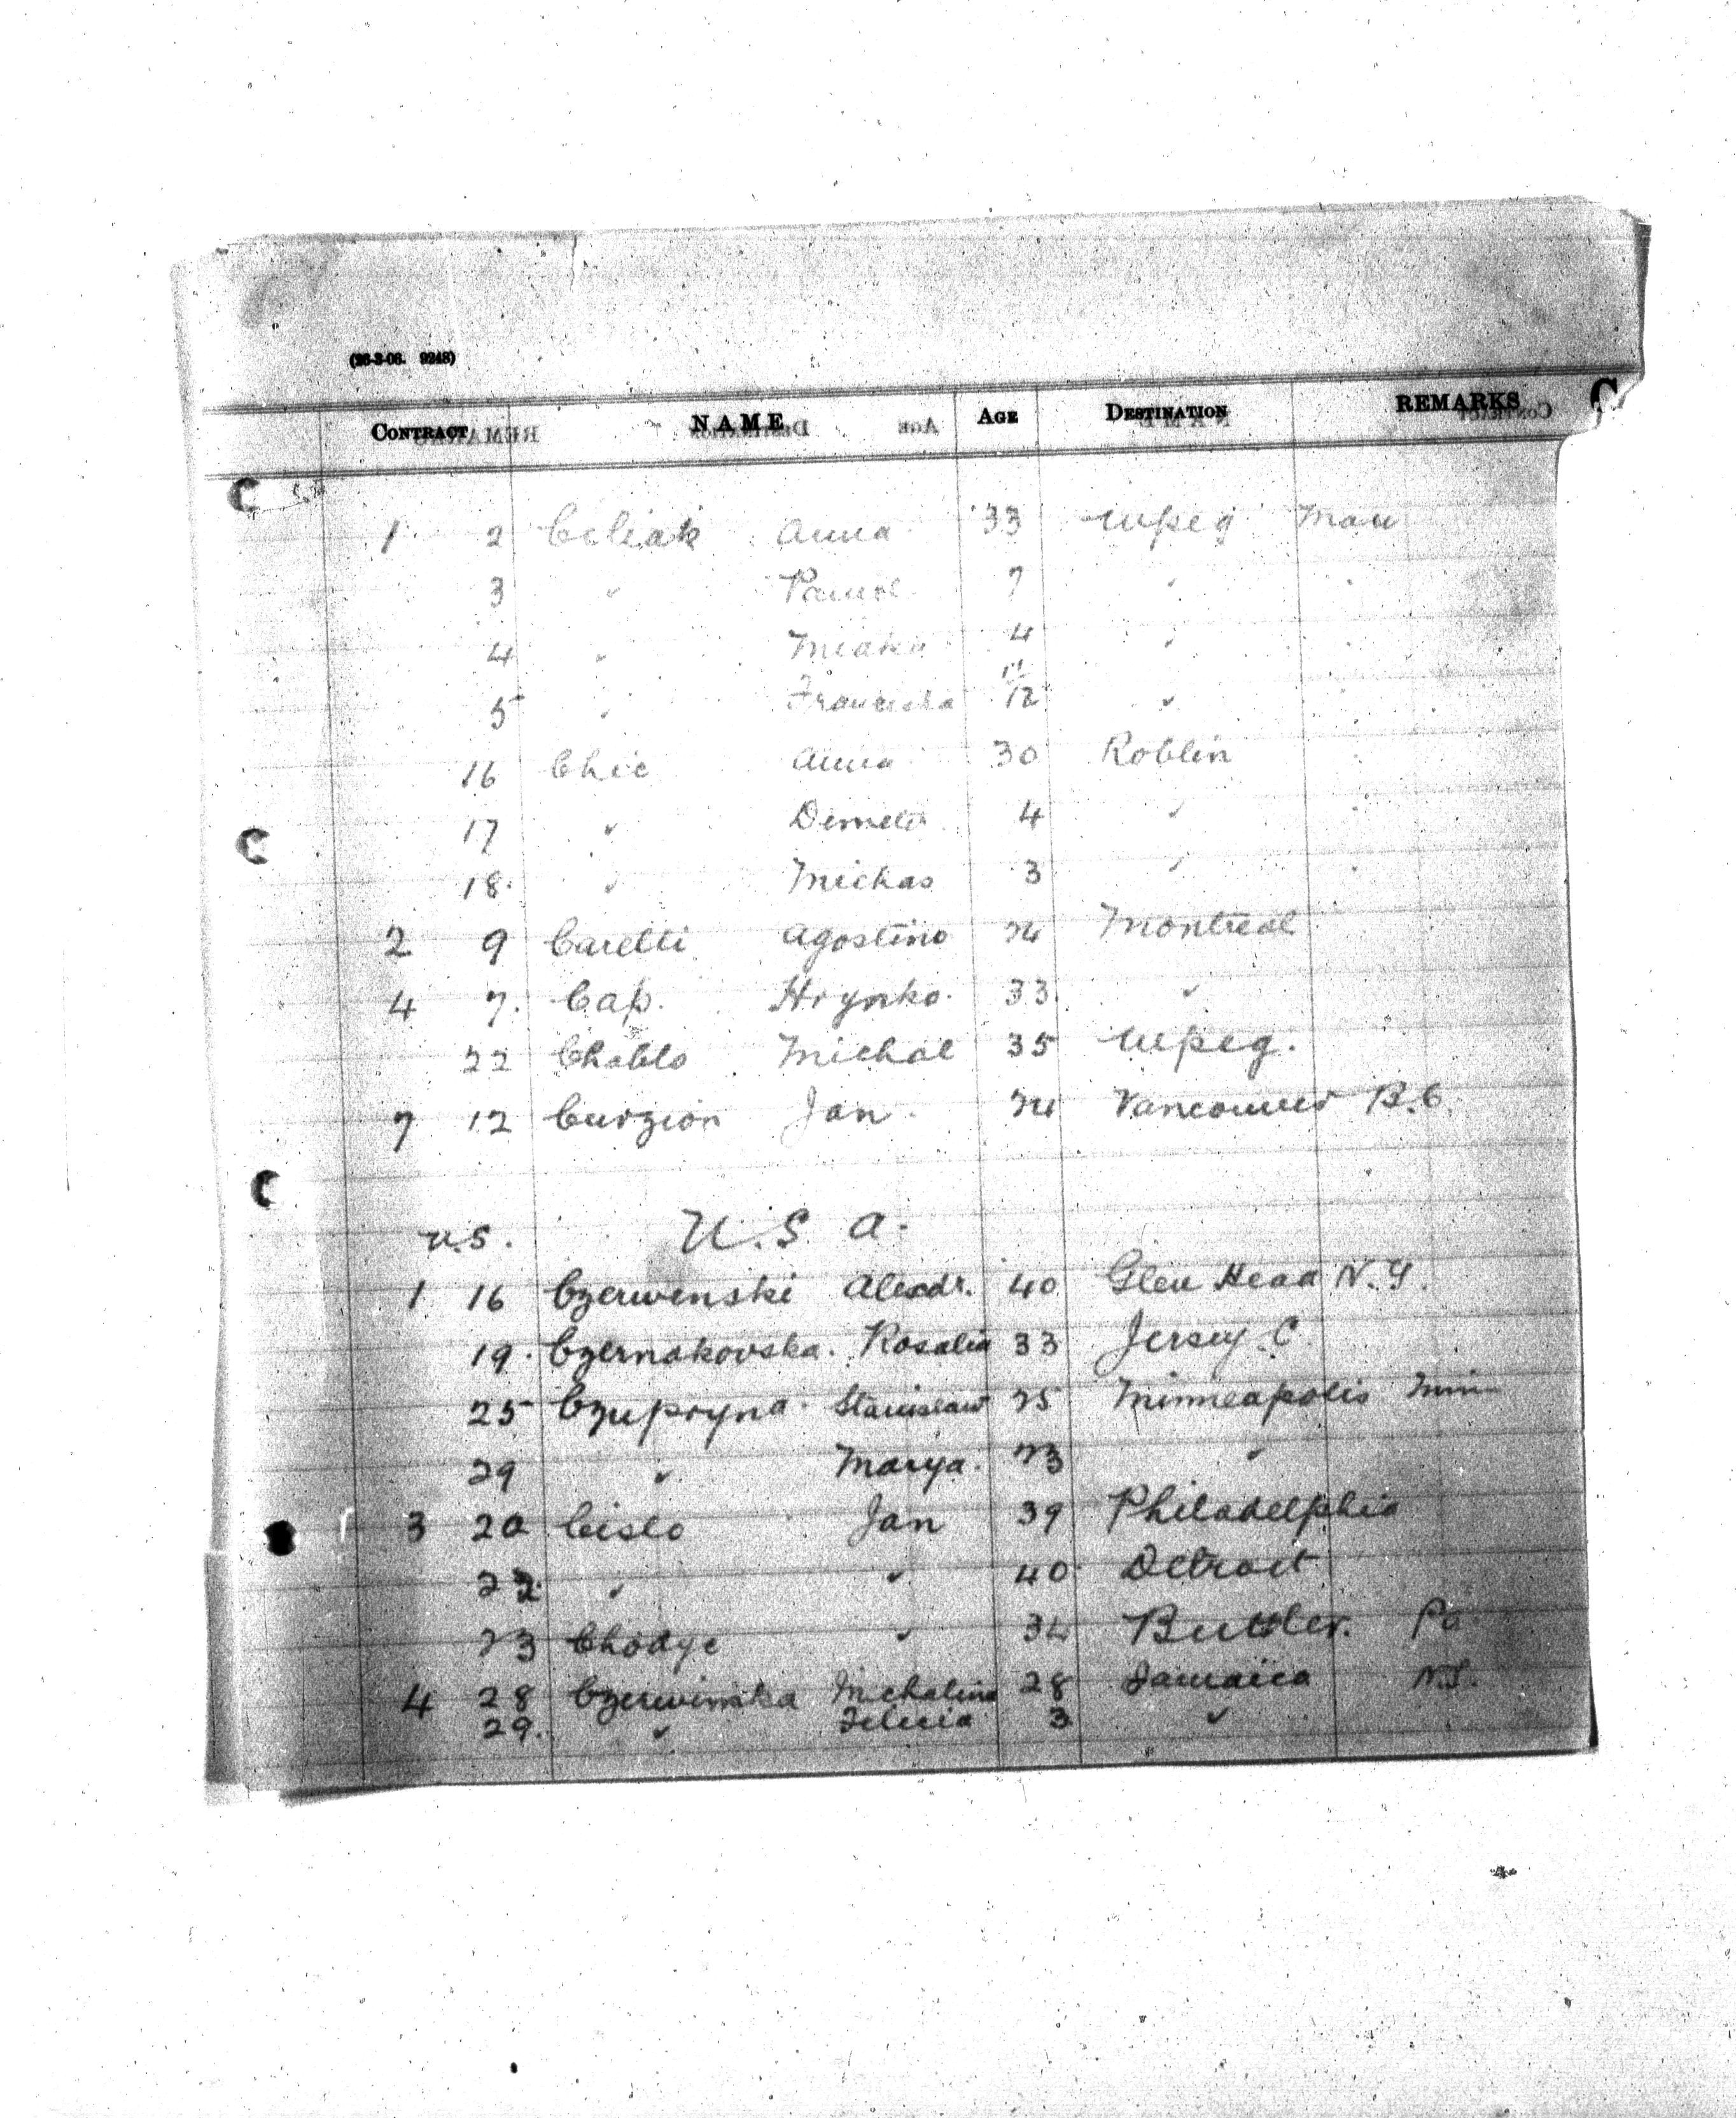 (26-3-06. 9248)
CONTRACT NAME AGE DESTINATION REMARKS C
1 2 Celiak Anna 33 Wpeg Man
3 " Pawel 7 "
4 " 4 "
5 " Franciska 11/12 "
16 Chic Anna 30 Roblin
17 " Dimeter 4 "
18. " Michas 3 "
2 9 Caretti Agostino 24 Montreal
4 7. Cap. Hrynko. 33. "
22 Chablo Michal 35 Wpeg.
7 12 Curzion Jan. 24 Vancouver B.C.
U.S. U.S.A.
1 16 Czerwenski Alexdr. 40 Glen Head N.Y.
19. Czernakovska. Rosalia 33 Jersey C.
25 Czupryna. Stanislaw 25 Minneapolis Minn
29 " Marya. 23 "
3 20 Cislo Jan 39 Philadelphia
22. " " 40 Detroit
23 Chodyc " 34 Buttler. Pa.
4 28 Czerwinska Michalina 28 Jamaica N.Y.
29. " Felicia 3 "